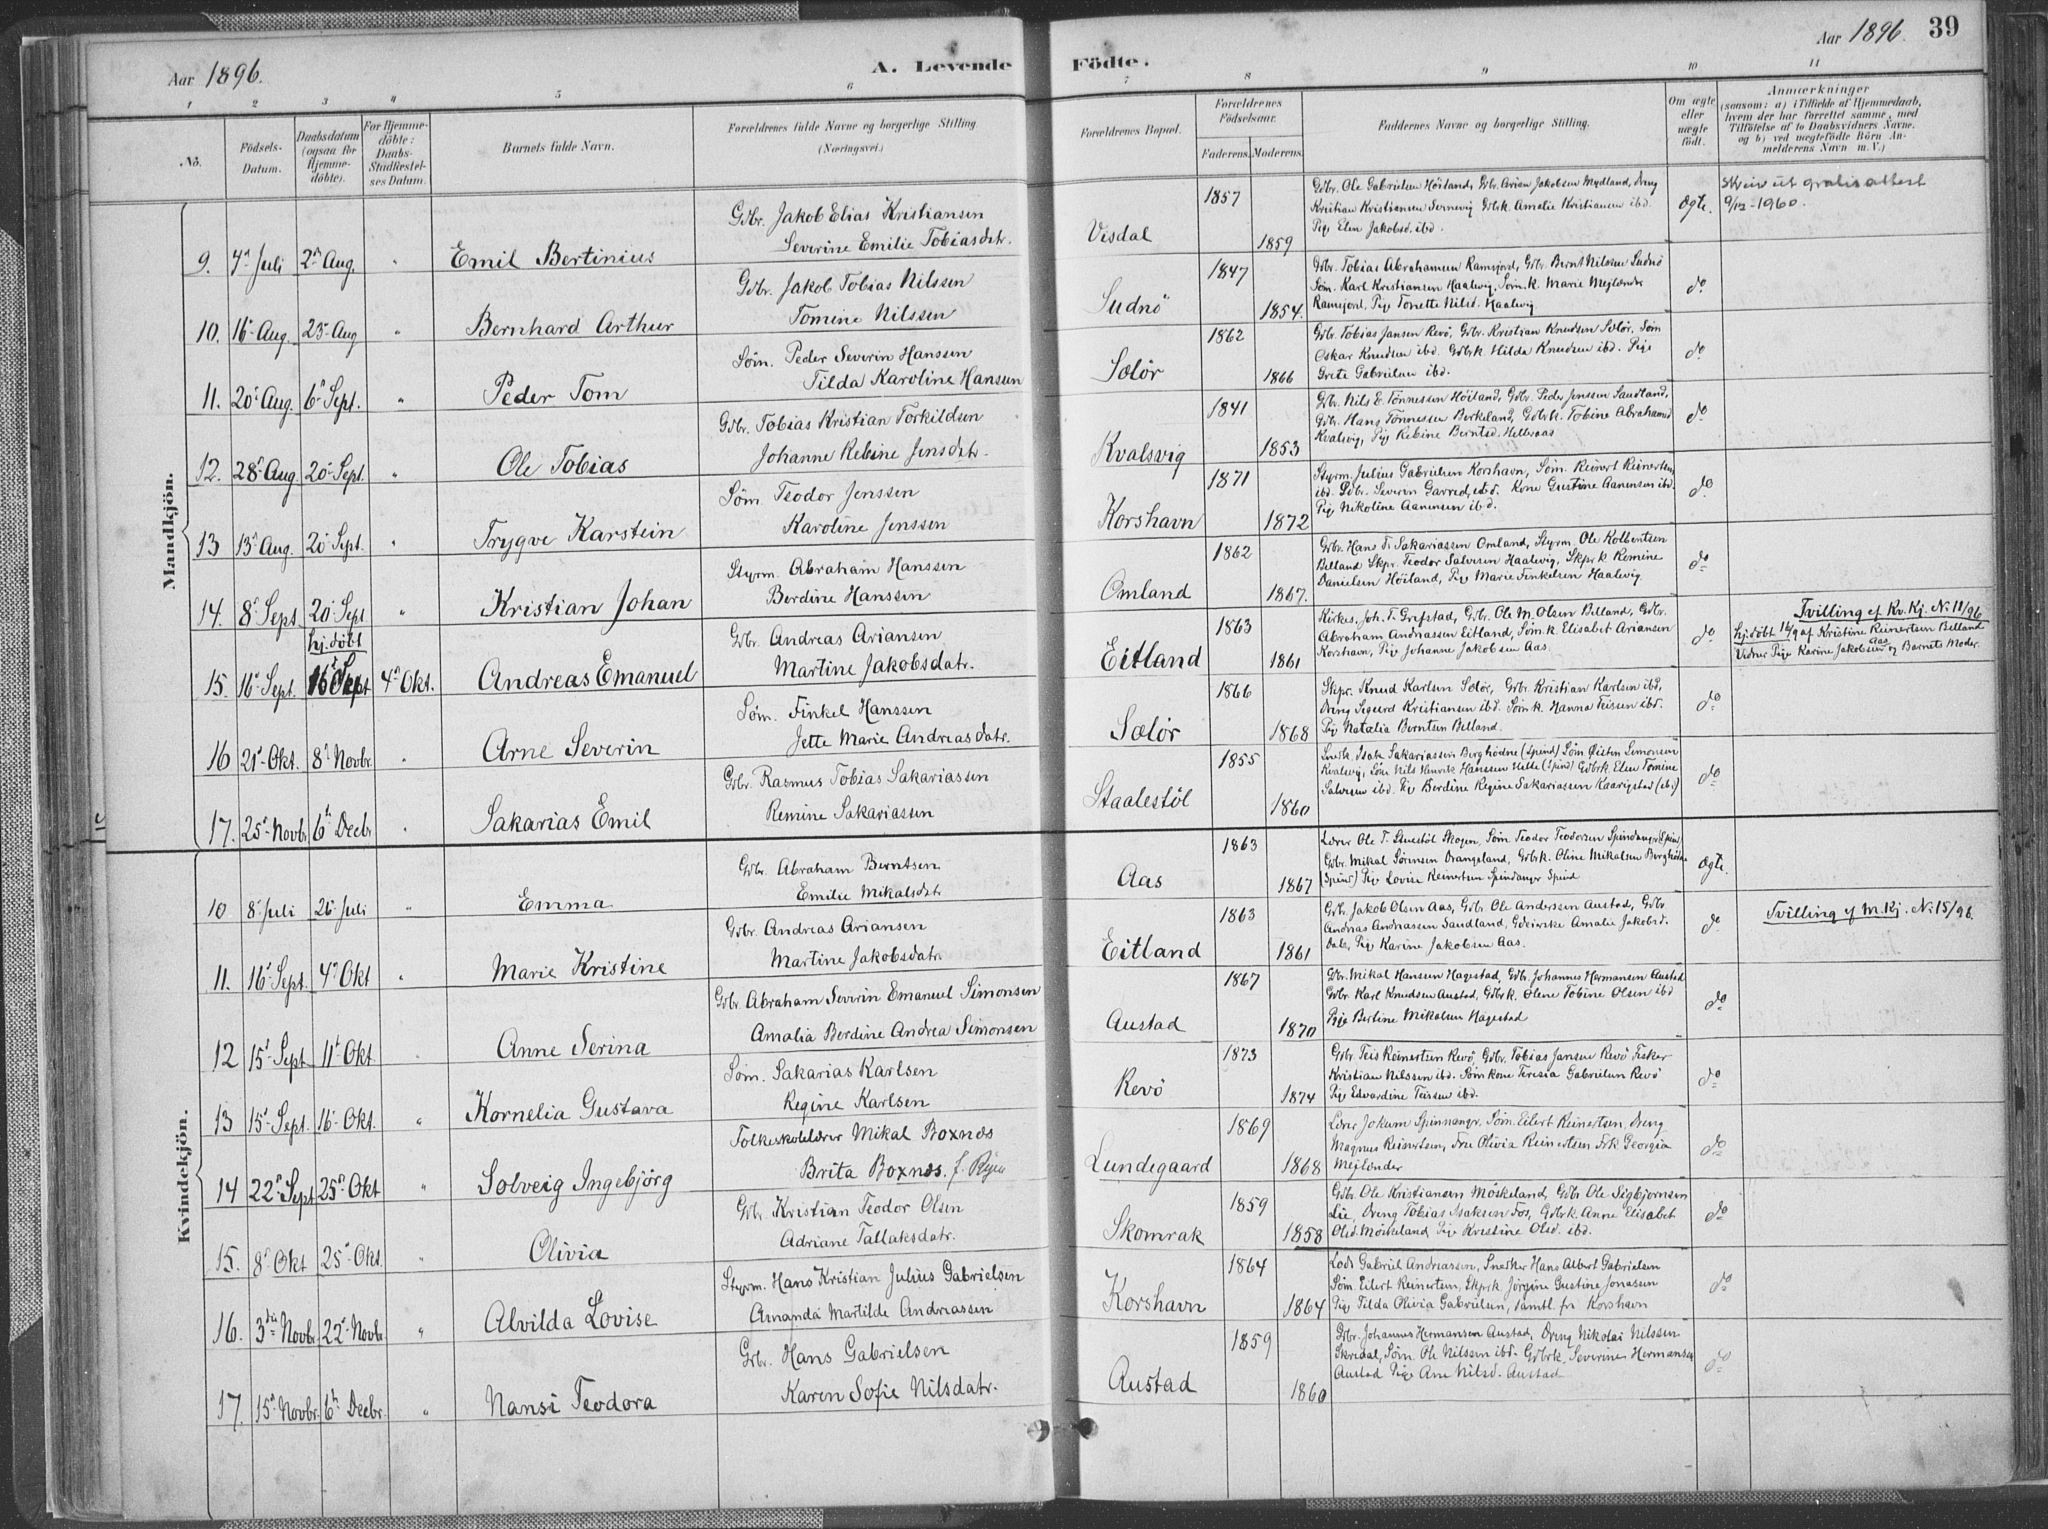 Aar 1896.
A. Levende Födte.
Aar 1896.
39
1 2 3 4 5 6 7 8 9 10 11
No.
Födsels-Datum.
Daabsdatum (ogsaa for Hjemme-döbte).
For Hjemme-döbte: Daabs-Stadfæstel-ses Datum.
Barnets fulde Navn.
Forældrenes fulde Navne og borgerlige Stilling. (Næringsvei.)
Forældrenes Bopæl.
Forældrenes Födselsaar. Faderens. Moderens.
Faddernes Navne og borgerlige Stilling.
Om ægte eller uægte födt.
Anmærkninger (saasom: a) i Tilfælde af Hjemmedaab, hvem der har forrettet samme, med Tilföielse af to Daabsvidners Navne, og b) ved uægtefödte Börn An-melderens Navn m. V.)
Mandkjön.
9. 4de Juli 2den Aug. " Emil Bertinius
Gdbr. Jakob Elias Kristiansen
Severine Emilie Tobiasdatr.
Visdal 1857 1859
Gdbr. Ole Gabrielsen Höiland, Gdbr. Arian Jakobsen Mydland, Dreng
Kristian Kristiansen Sernevig Gdbrk. Amalie Kristiansen ibd.
Pige Elen Jakobsd. ibd.
Ægte.
Skrevet gratisattest
9/12-1960.
10. 16de Aug. 23de Aug " Bernhard Arthur
Gdbr. Jakob Tobias Nilssen
Tomine Nilssen
Sudnö 1847 1854.
Gdbr. Tobias Abrahamsen Ramsjord, Gdbr. Bernt Nilssen Sudnö
Söm. Karl Kristiansen Haalvig, Söm.k. Marie Mejlænder
Ramsjord, Pige Tonette Nilsd. Haalvig
do
11. 20de Aug. 6te Sept. " Peder Tom
Söm. Peder Severin Hanssen
Tilda Karoline Hanssen
Sælör 1862 1866
Gdbr. Tobias Jansen Revö, Gdbr. Kristian Knudsen Sælör, Söm
Oskar Knudsen ibd. Gdbrk. Hilda Knudsen ibd. Pige
Grete Gabrielsen ibd.
do
12. 28de Aug. 20de Sept. " Ole Tobias
Gdbr. Tobias Kristian Torkildsen
Johanne Rebine Jensdatr.
Kvalsvig 1841 1853
Gdbr. Nils E. Tönnessen Höiland, Gdbr. Peder Jenssen Sandland,
Gdbr. Hans Tönnessen Berkeland, Gdbrk. Tobine Abrahamsd
Kvalsvig, Pige Rebine Berntsd. Helleraas
do
13 13de Aug. 20de Sept. " Trygve Karstein
Söm. Teodor Jenssen
Karoline Jenssen
Korshavn 1871 1872
Styrm. Julius Gabrielsen Korshavn, Söm. Reinert Reinertsen,
ibd. Gdbr. Severin Garred, ibd. Kone Gustine Aanensen ibd.
Pige Nikoline Aanensen ibd.
do
14. 8de Sept. 20de Sept " Kristian Johan
Styrm. Abraham Hanssen
Berdine Hanssen
Omland 1862 1867.
Gdbr. Hans T. Sakariassen Omland, Styrm. Ole Kolbentsen
Belland Skpr. Teodor Salvesen Haalvig, Skpr.k Romine
Danielsen Höiland, Pige Marie Finkelsen Haalvig
do
15. 16de Sept. hj. döbt 16de Sept 4de Okt. Andreas Emanuel
Gdbr. Andreas Ariansen
Martine Jakobsdatr.
Eitland 1863 1861
Kirkes. Joh. T. Grefstad, Gdbr. Ole M. Olsen Belland, Gdbr.
Abraham Andreassen Eitland, Söm.k. Elisabet Ariansen
Korshavn, Pige Johanne Jakobsen Aas.
do
Tvilling af Kv. Kj. No 11/96
hj. döbt 16/9 af Kristine Reinertsen Belland
Vidner Pige Karine Jakobsen Aas og Barnets Moder.
16 21de Okt. 8de Novbr. " Arne Severin
Söm. Finkel Hanssen
Jette Marie Andreasdatr.
Sælör 1866 1868
Skpr. Knud Karlsen Sælör, Gdbr. Kristian Karlsen ibd,
Dreng Sigurd Kristiansen ibd. Söm.k. Hanna Teisen ibd.
Pige Natalia Berntsen Belland.
do
17. 25de Novbr 6te Decbr " Sakarias Emil
Gdbr. Rasmus Tobias Sakariassen
Remine Sakariassen
Staalestöl 1855 1860
Snedk. Isak Sakariassen Berghödne (Spind) Söm. Östen Simonsen
Kvalsvig, Söm. Nils Henrik Hanssen Helle (Spind) Gdbrk. Elen Tomine
Salvesen ibd. Pige Berdine Regine Sakariassen Kaarigstad (ibd)
do
Kvindekjön.
10 8de Juli 26de Juli " Emma
Gdbr. Abraham Berntsen
Emilie Mikalsdatr
Aas 1863 1867
Lærer Ole T. Stuestöl Skogen, Söm Teodor Teodorsen Spindanger (Spind)
Gdbr. Mikal Sörensen Drangeland, Gdbrk. Oline Mikalsen Berghödne
(Spind) Pige Lovise Reinertsen Spindanger Spind
Ægte.
11. 16de Sept. 4de Okt " Marie Kristine
Gdbr. Andreas Ariansen
Martine Jakobsdatr.
Eitland 1863 1861
Gdbr. Jakob Olsen Aas, Gdbr. Ole Anderssen Austad, Gdbr
Andreas Andreassen Sandland, Gdeierske Amalie Jakobsd.
Dale, Pige Karine Jakobsen Aas.
do
Tvilling af M. Kj. No 15/96.
12 15de Sept 11te Okt " Anne Serina
Gdbr Abraham Severin Emanuel Simonsen
Amalia Berdine Andrea Simonsen
Austad 1867 1870
Gdbr. Mikal Hanssen Hagestad, Gdbr. Johannes Hermansen Austad
Gdbr. Karl Knudsen Austad, Gdbrk. Olene Tobine Olsen ibd
Pige Bertine Mikalsen Hagestad
do
13 15de Sept. 16de Okt. " Kornelia Gustava
Söm. Sakarias Karlsen
Regine Karlsen
Revö 1873 1874
Gdbr Teis Reinertsen Revö, Gdbr. Tobias Jansen Revö Fisker
Kristian Nilssen ibd. Sömkone Teresia Gabrielsen Revö
Pige Edvardine Teissen ibd.
do
14 22de Sept 25de Okt " Solveig Ingebjörg
Folkeskolelærer Mikal Boxnæs
Brita Boxnæs.
Lundegaard 1869 1868
Lærer Jokum Spinnangr. Söm. Eilert Reinertsen, Dreng
Magnus Reinertsen, Fru Olivia Reinertsen Frk Georgia
Mejlænder
do
15. 8de Okt 25de Okt. " Olivia
Gdbr. Kristian Teodor Olsen
Adriane Tallaksdatr.
Skomrak 1859 1858
Gdbr. Ole Kristiansen Möskeland, Gdbr Ole Sigbjörnsen
Lie, Dreng Tobias Isaksen Fos, Gdbrk. Anne Elisabet
Olsd. Möskeland, Pige Kristine Olsd. ibd.
do
16. 3die Novbr. 22de Novbr. " Alvilda Lovise
Styrm. Hans Kristian Julius Gabrielsen
Amanda Martilde Andreassen
Korshavn 1864 1864
Lods Gabriel Andreassen, Snedker Hans Albert Gabrielsen
Söm. Eilert Reinertsen, Skpr.k Jörgine Gustine Jonassen
Pige Tilda Olivia Gabrielsen, samtl. fr. Korshavn
do
17. 15de Novbr. 6te Decbr. " Nansi Teodora
Gdbr. Hans Gabrielsen
Karen Sofie Nilsdatr.
Austad 1859 1860
Gdbr. Johannes Hermansen Austad, Dreng Nikolai Nilssen
Skredal, Söm. Ole Nilssen ibd. Gdbrk. Severine Hermansen
Austad Pige Ane Nilsd. Austad
do